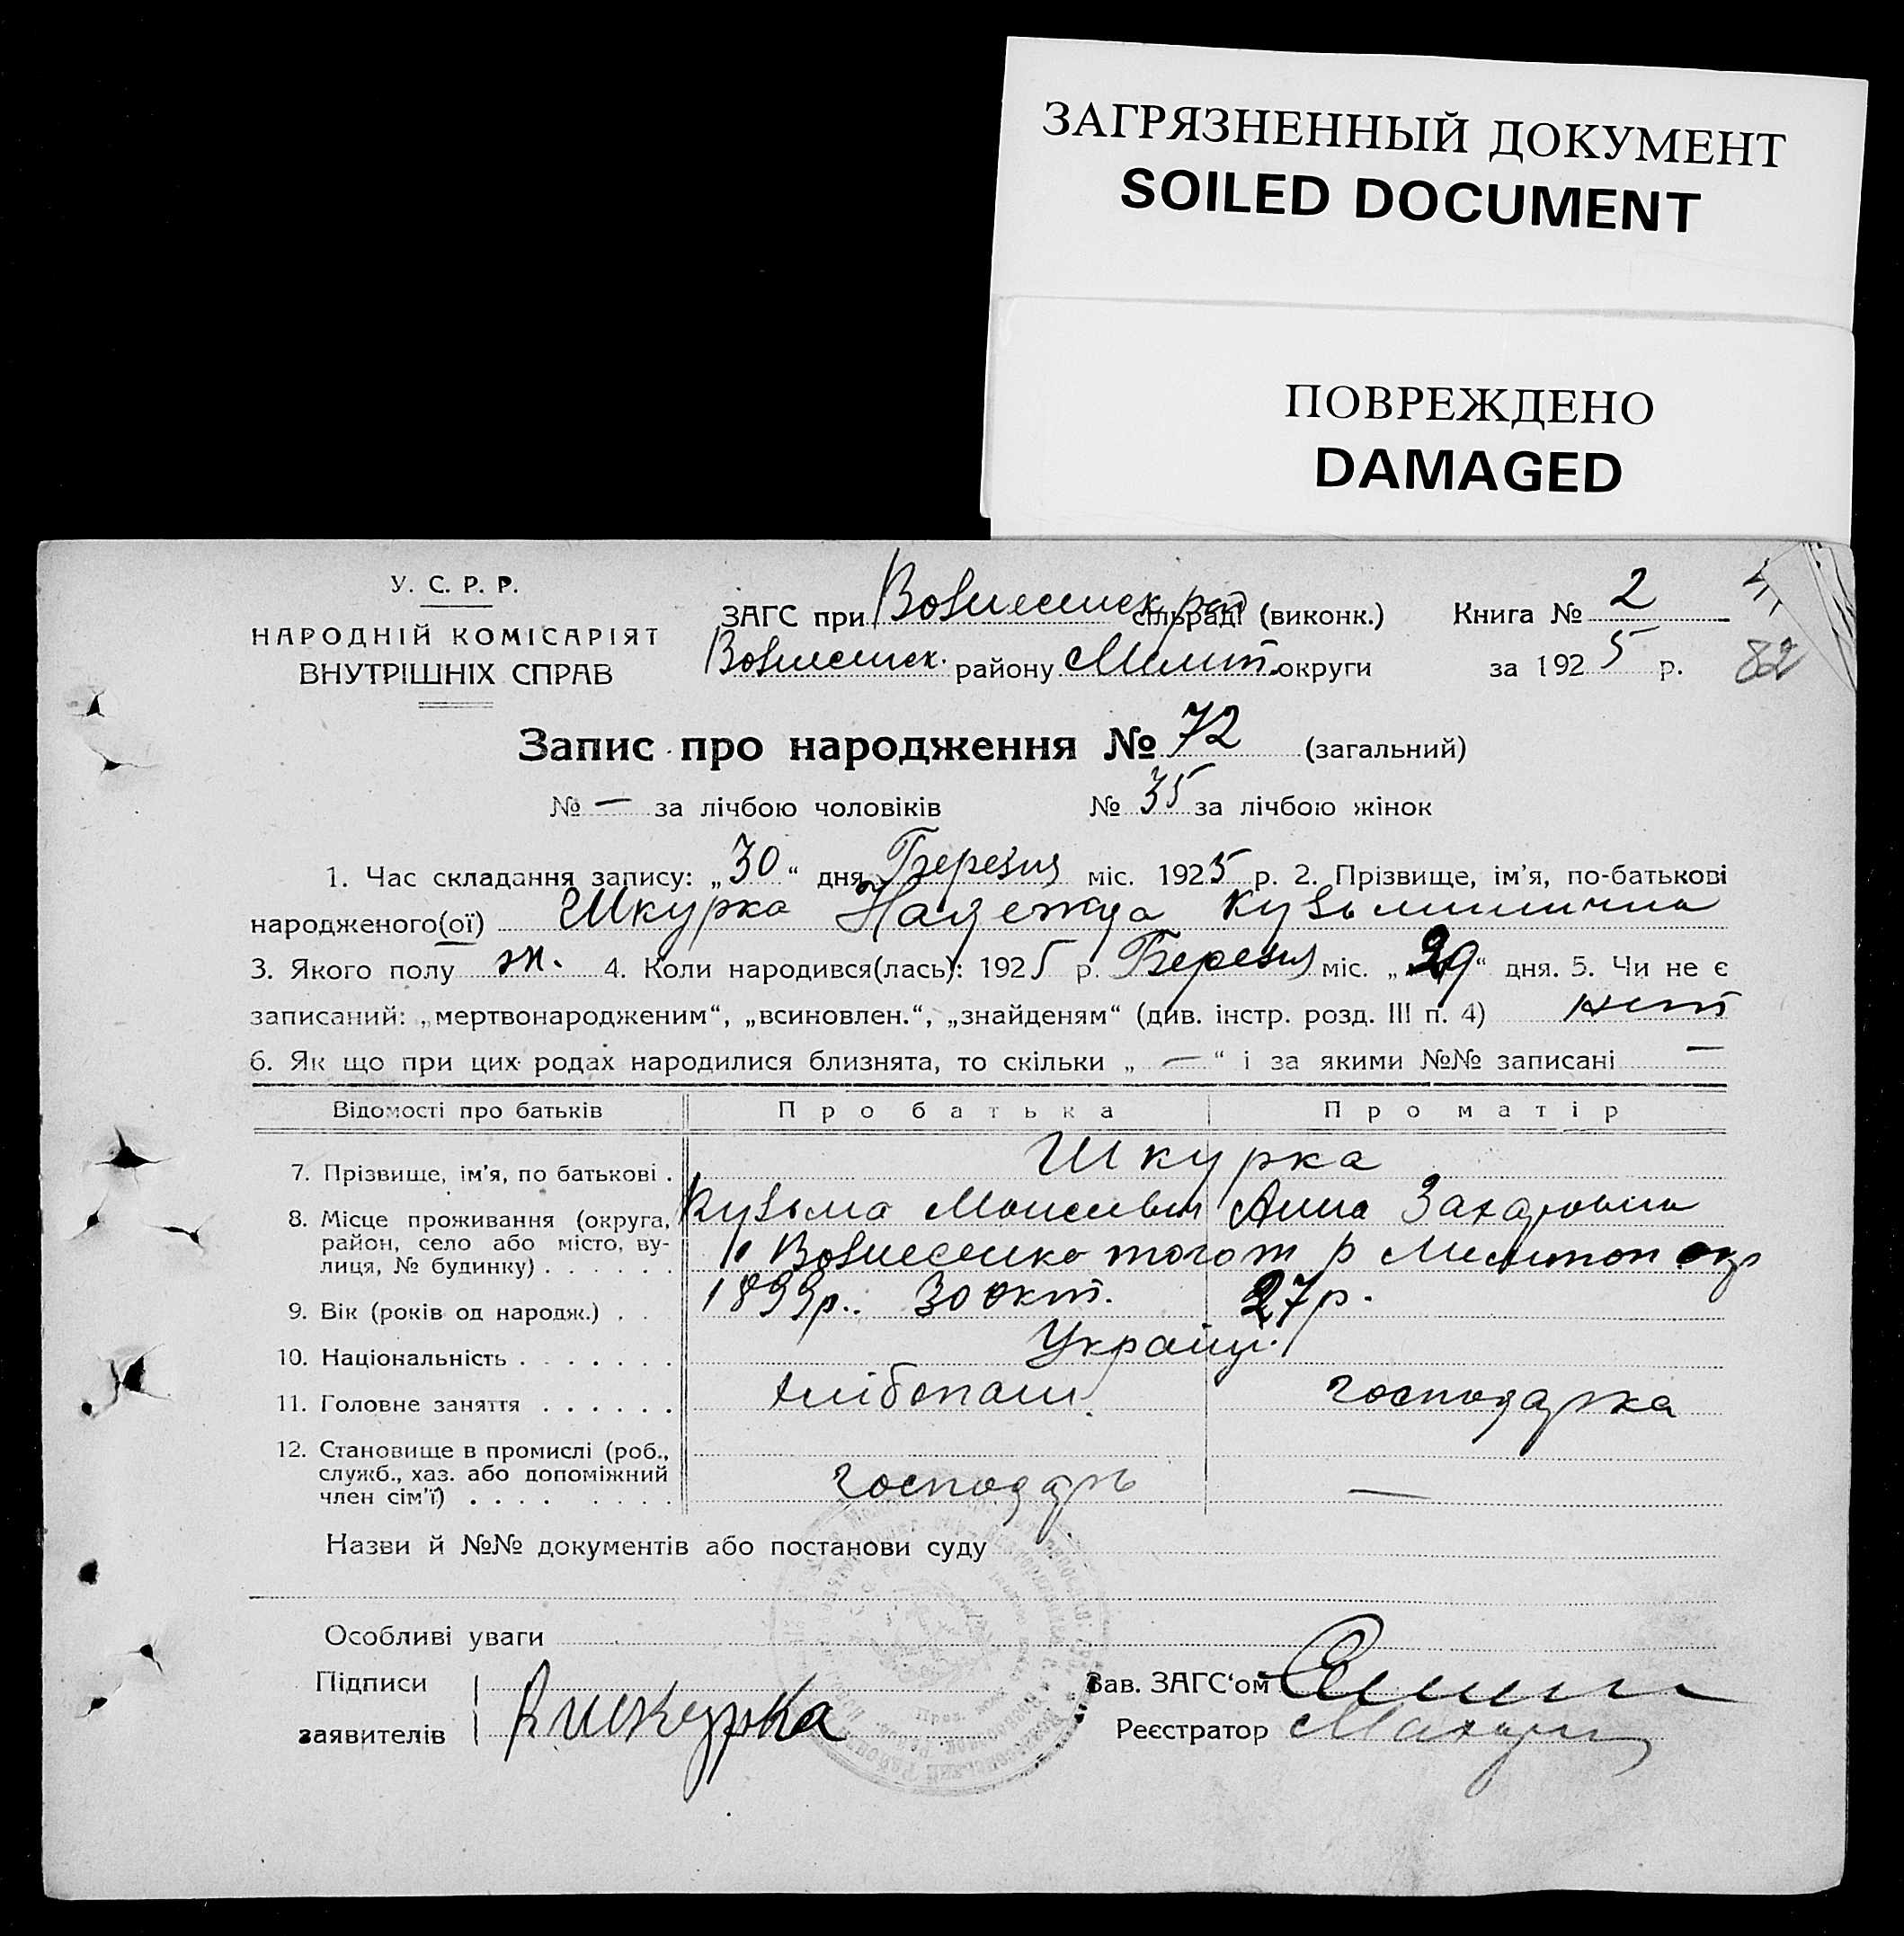 ЗАГРЯЗНЕННЫЙ ДОКУМЕНТ
SOILED DOCUMENT
ПОВРЕЖДЕНО
DAMAGED
У. С. Р. Р.
НАРОДНІЙ КОМІСАРІЯТ
ВНУТРІШНІХ СПРАВ
ЗАГС при Вознесенск рай сільраді (виконк.) Книга № 2
Вознесенск. району Мелит. округи за 1925 р. 82
Запис про народження № 72 (загальний)
№ — за лічбою чоловіків № 35 за лічбою жінок
1. Час складання запису: „30“ дня Березня міс. 1925 р. 2. Прізвище, ім’я, по-батькові
народженого(ої) Шкурка Надежда Кузьминична
3. Якого полу ж. 4. Коли народився(лась): 1925 р. Березня міс. „29“ дня. 5. Чи не є
записаний: „мертвонародженим“, „всиновлен.“, „знайденям“ (див. інстр. розд. III п. 4) нет
6. Як що при цих родах народилися близнята, то скільки „—“ і за якими №№ записані —
Відомості про батьків Про батька Про матір
7. Прізвище, ім’я, по батькові . Шкурка
Кузьма Моисеевич Анна Захаровна
8. Місце проживання (округа, район, село або місто, вулиця, № будинку) . . . . . . Вознесенка того ж р Мелитоп окр
9. Вік (років од народж.) . . 1899р. 30 окт. 27 р.
10. Національність . . . . . . . Українці
11. Головне заняття . . . . . . хлібопаш. господарка
12. Становище в промислі (роб., служб., хаз. або допоміжний член сім’ї) . . . . . . . . господарь —
Назви й №№ документів або постанови суду
Особливі уваги
Підписи
заявителів Кшкурка
Зав. ЗАГС‘ом
Реєстратор